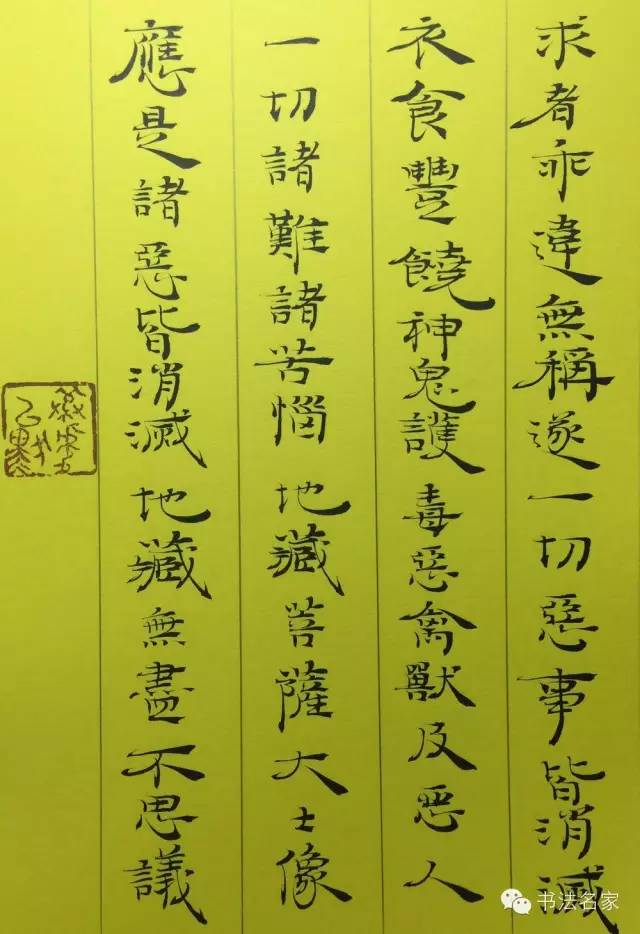 求者乖違無稱遂一切惡事皆消滅
衣食豐饒神鬼護毒惡禽獸及惡人
一切諸難諸苦惱地藏菩薩大士像
應是諸惡皆消滅地藏無盡不思議
书法名家